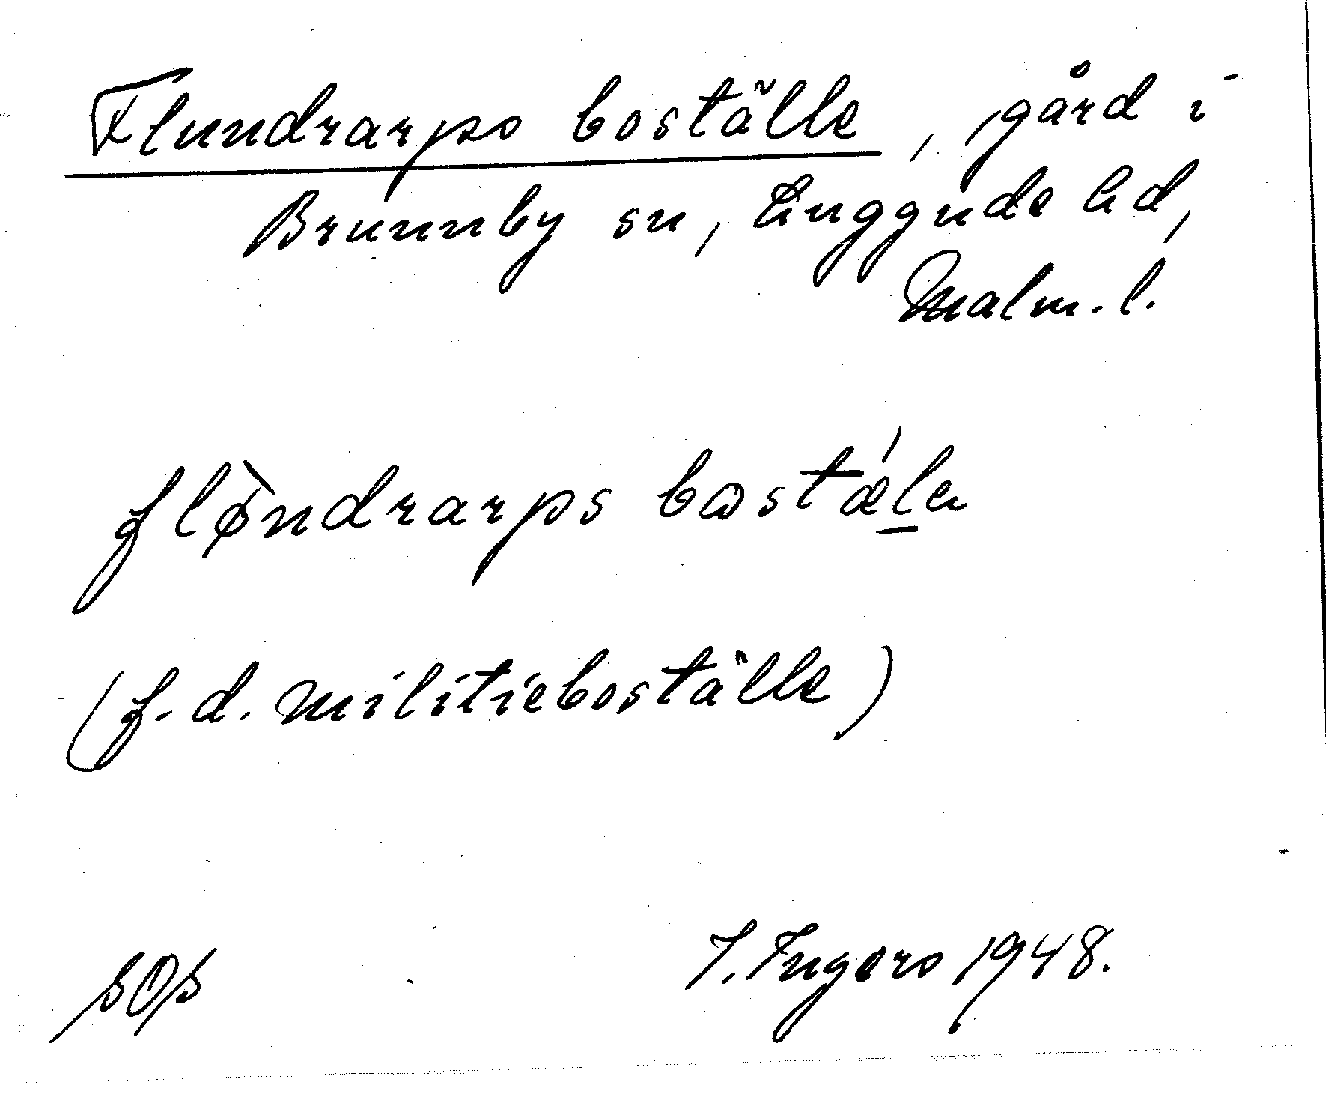 Flundrarps boställe, gård i
Brunnby sn, Luggude hd,
Malm. l.
flø̀ndrarps bostǽla
(f.d. militieboställe)
SOS I. Ingers 1948.